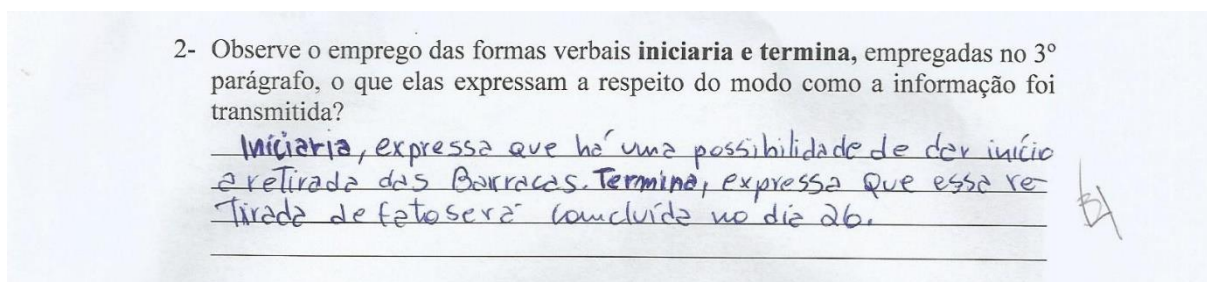 2- Observe o emprego das formas verbais iniciaria e termina, empregadas no 3º
parágrafo, o que elas expressam a respeito do modo como a informação foi
transmitida?
Iniciaria, expressa que há uma possibilidade de dar início
a retirada das Barracas. Termina, expressa que essa re-
tirada de fato será comcluída no dia 26.